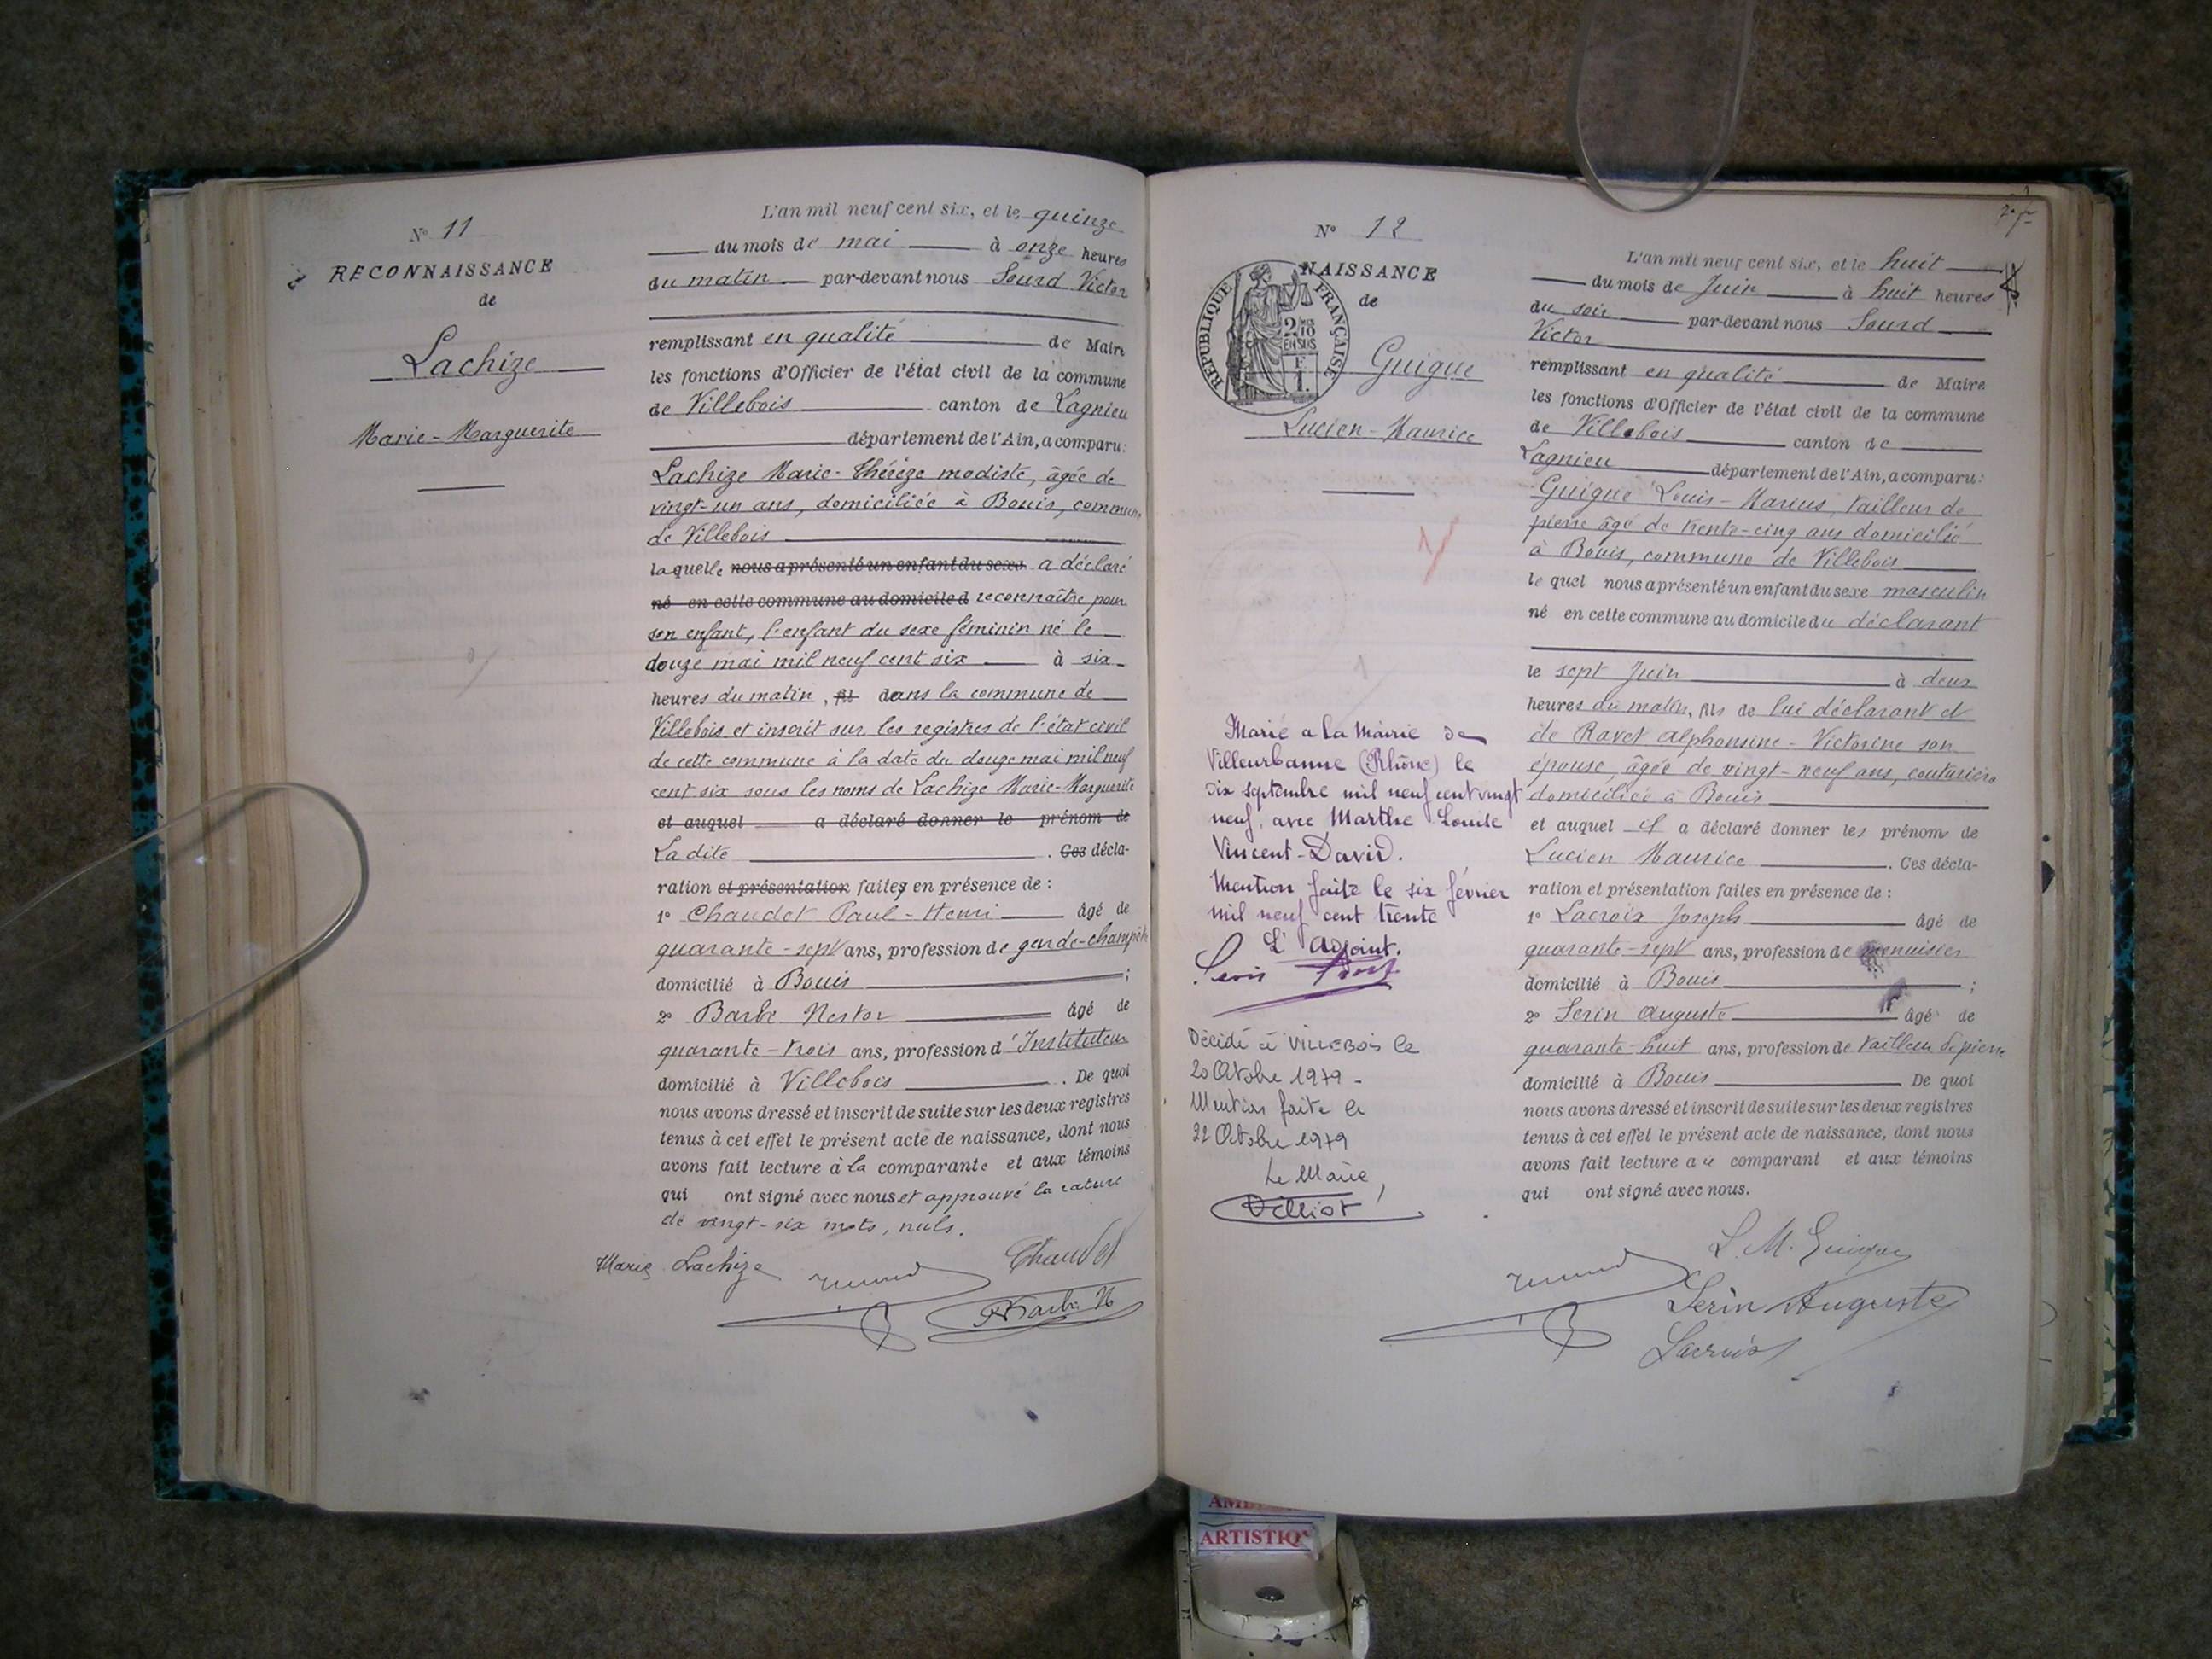 N° 11
RECONNAISSANCE
de
Lachize
Marie-Marguerite
L'an mil neuf cent six, et le quinze
du mois de mai à onze heures
du matin par-devant nous Sourd Victor
remplissant en qualité de Maire
les fonctions d'Officier de l'état civil de la commune
de Villebois canton de Lagnieu
département de l'Ain, a comparu:
Lachize Marie-Thérèze modiste, âgée de
vingt-un ans, domiciliée à Bouis, commune
de Villebois
laquelle nous a présenté un enfant du sexe a déclaré
né en cette commune au domicile d reconnaître pour
son enfant, l'enfant du sexe féminin né le
douze mai mil neuf cent six à six
heures du matin, fil dans la commune de
Villebois et inscrit sur les registres de l'état civil
de cette commune à la date du douze mai mil neuf
cent six sous les noms de Lachize Marie-Marguerite
et auquel a déclaré donner le prénom de
La dite . Ces décla-
ration et présentation faites en présence de :
1° Chaudet Paul-Henri âgé de
quarante-sept ans, profession de garde-champêtre
domicilié à Bouis ;
2° Barbe Nestor âgé de
quarante-trois ans, profession d'Instituteur
domicilié à Villebois . De quoi
nous avons dressé et inscrit de suite sur les deux registres
tenus à cet effet le présent acte de naissance, dont nous
avons fait lecture à la comparante et aux témoins
qui ont signé avec nous et approuvé la rature
de vingt-six mots, nuls.
Marie Lachize
Chaudet
Barbe N
N° 12
NAISSANCE
de
RÉPUBLIQUE FRANÇAISE
2/10 EN SUS
F
1.
Guigue
Lucien-Maurice
1
Marié a la Mairie de
Villeurbanne (Rhône) le
six septembre mil neuf cent vingt
neuf, avec Marthe Louise
Vincent-David.
Mention faite le six février
mil neuf cent trente
L'adjoint.
Décédé à VILLEBOIS le
20 Octobre 1979 -
Mention faite le
22 Octobre 1979
Le Maire,
L'an mil neuf cent six, et le huit
du mois de Juin à huit heures
du soir par-devant nous Sourd
Victor
remplissant en qualité de Maire
les fonctions d'Officier de l'état civil de la commune
de Villebois canton de
Lagnieu département de l'Ain, a comparu:
Guigue Louis-Marius, tailleur de
pierre âgé de trente-cinq ans domicilié
à Bouis, commune de Villebois
le quel nous a présenté un enfant du sexe masculin
né en cette commune au domicile du déclarant
le sept Juin à deux
heures du matin, fils de lui déclarant et
de Ravet Alphonsine-Victorine son
épouse, âgée de vingt-neuf ans, couturière
domiciliée à Bouis
et auquel il a déclaré donner les prénoms de
Lucien Maurice . Ces décla-
ration et présentation faites en présence de :
1° Lacroix Joseph âgé de
quarante-sept ans, profession de menuisier
domicilié à Bouis ;
2° Serin Auguste âgé de
quarante-huit ans, profession de tailleur de pierre
domicilié à Bouis De quoi
nous avons dressé et inscrit de suite sur les deux registres
tenus à cet effet le présent acte de naissance, dont nous
avons fait lecture au comparant et aux témoins
qui ont signé avec nous.
L. M. Guigue
Serin Auguste
Lacroix
ARTISTIQ